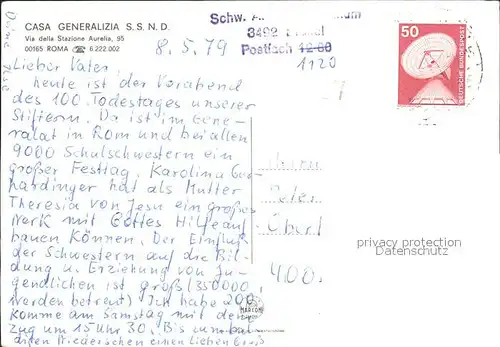 CASA GENERALIZIA S. S. N. D.
Via della Stazione Aurelia, 95
00165 ROMA ☎ 6.222.002
8.5.79
Schw.
3492
Postfach 12 60
1120
50
DEUTSCHE BUNDESPOST
Lieber Vater,
heute ist der Vorabend
des 100. Todestages unserer
Stifterin. Da ist im Gene-
ralat in Rom und bei allen
9000 Schulschwestern ein
großer Festtag. Karolina Ger-
hardinger hat als Mutter
Theresia von Jesu ein großes
Werk mit Gottes Hilfe auf
bauen können. Der Einfluß
der Schwestern auf die Bil-
dung u. Erziehung von Ju-
gendlichen ist groß (350000
werden betreut) Ich habe 200
komme am Samstag mit dem
Zug um 15 Uhr 30. Bis zum bal-
digen Wiedersehen einen lieben Gruß
400.
privacy protection
Datenschutz